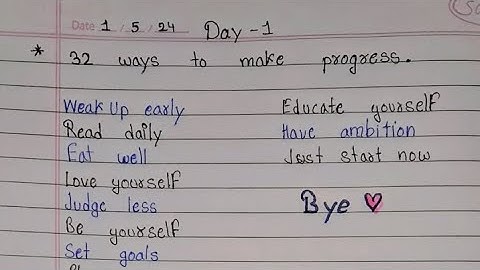 Date 1 / 5 / 24 Day - 1
* 32 ways to make progress.
Weak Up early
Read daily
Eat well
Love yourself
Judge less
Be yourself
Set goals
Educate yourself
Have ambition
Just start now
Bye ♡